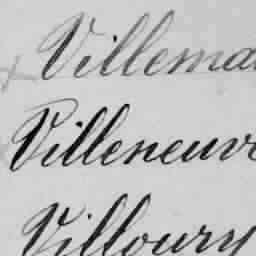 Villema
Villeneuve
Villoury